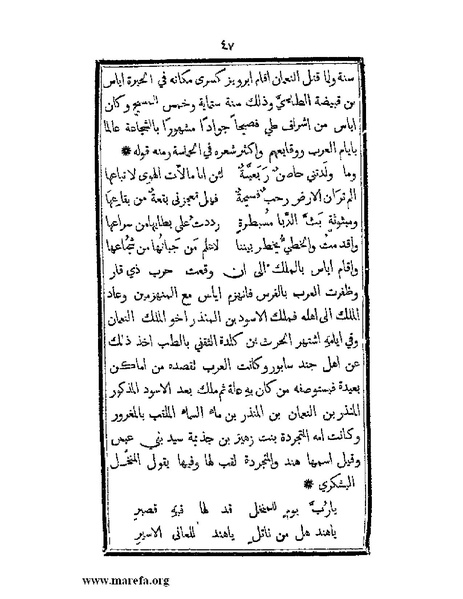 ٤٧
سنة ولما قتل النعمان اقام ابرويز كسرى مكانه في الحيرة اياس
بن قبيصة الطايي وذلك سنة ستماية وخمس للمسيح وكان
اياس من اشراف طي فصيحاً جواداً مشهورًا بالشجاعة عالما
بايام العرب ووقايعهم واكثر شعره في الحماسة ومنه قوله *
وما ولدتني حاصنٌ رَبَعيَّةٌ لئن انا مالأت الهوى لاتباعها
الم ترَ ان الارض رحبٌ فسيحةٌ فهل تعجزني بقعةٌ من بقاعها
ومبثوثةٍ بَثَّ الدَّبا مُسبطِرةٍ رددتُ على بطايها من سراعها
واقدمتُ والخطيُّ يخطر بيننا لاعلم مَن جَبانُها من شُجاعُها
واقام اياس بالملك الى ان وقعت حرب ذي قار
وظفرت العرب بالفرس فانهزم اياس مع المنهزمين وعاد
الملك الى اهله فملك الاسود بن المنذر اخو الملك النعمان
وفي ايامهِ اشتهر الحرث بن كلدة الثقفي بالطب اخذ ذلك
عن اهل جند سابور وكانت العرب تقصده من اماكن
بعيدة فيستوصفه من كان بهِ علة ثم ملك بعد الاسود المذكور
المنذر بن النعمان بن المنذر بن ماء السماء الملقب بالمغرور
وكانت امه المتجردة بنت زهير بن جذيمة سيد بني عبس
وقيل اسمها هند والمتجردة لقب لها وفيها يقول المنخل
اليشكري *
يا رُبَّ يومٍ للمنخل قد لها فيهِ قصير
يا هند هل من نائلٍ يا هند للعاني الاسير
www.marefa.org